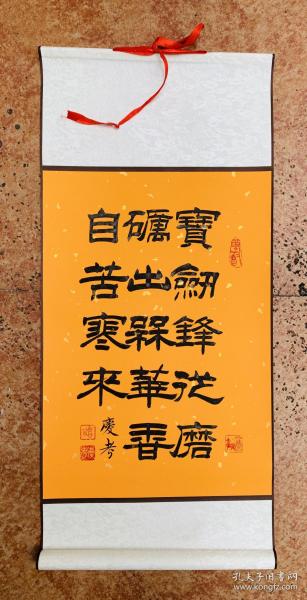 寶劍鋒從磨
礪出槑華香
自苦寒來
慶考
孔夫子旧书网
www.kongfz.com